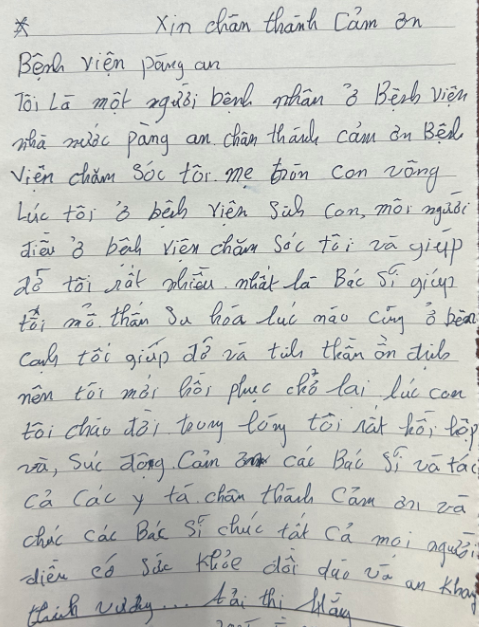 * Xin chân thành Cảm ơn
Bệnh viện pàng an
Tôi Là một người bệnh nhân ở Bệnh viện
nhà nước pàng an. chân thành cảm ơn Bệnh
viện chăm sóc tôi. mẹ tròn con vông
Lúc tôi ở bệnh viện Sinh con, môi người
điều ở bênh viên chăm sóc tôi và giúp
đỡ tôi rất nhiều. nhất là Bác Sĩ giúp
tôi mổ. thần Su hóa luc nào Cũng ở bên
canh tôi giúp đỡ và tinh thần ổn định
nên tôi mới hồi phục chở lai lúc con
tôi chào đời trong lòng tôi rất hồi hộp
và, Súc động. Cảm ơn các Bác Sĩ và tác
cả Các y tá. chân thành Cảm ơn và
chúc các Bác Sĩ chúc tất Cả mọi người
điều có Sức Khỏe dồi dào và an Khang
thinh vượng... tải thị Hằng